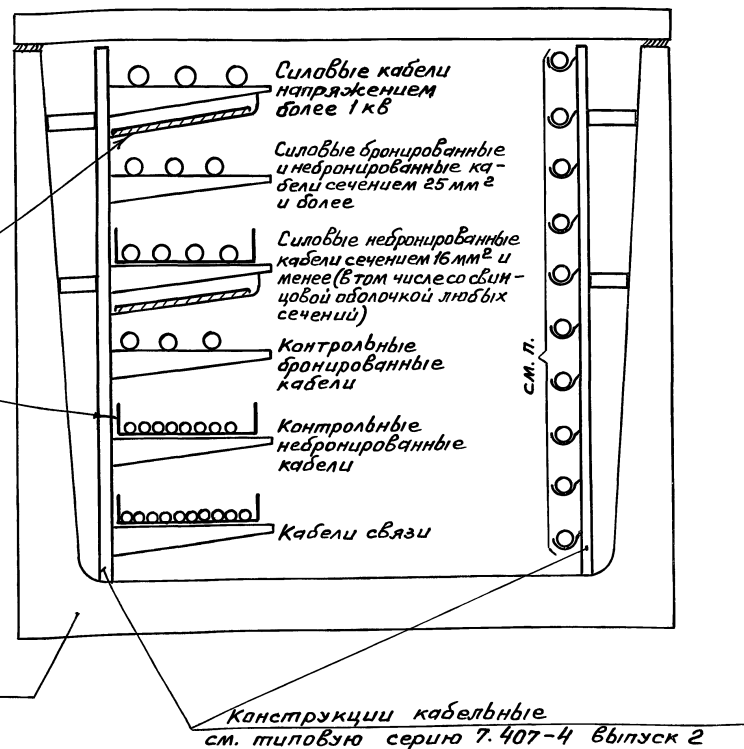 Силовые кабели
напряжением
более 1 кв
Силовые бронированные
и небронированные ка-
бели сечением 25 мм²
и более
Силовые небронированные
кабели сечением 16мм² и
менее (в том числе со свин-
цовой оболочкой любых
сечений)
Контрольные
бронированные
кабели
Контрольные
небронированные
кабели
Кабели связи
см. п.
Конструкции кабельные
см. типовую серию 7.407-4 выпуск 2